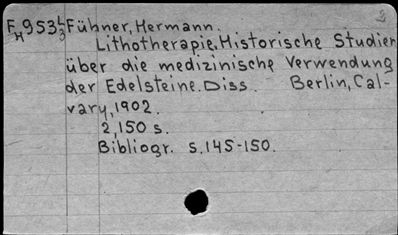 Fühner, Hermann.
Lithotherapie. Historische Studien
über die medizinische Verwendung
der Edelsteine. Diss. Berlin, Cal-
vary, 1902.
2,150 s.
Bibliogr. s. 145-150.